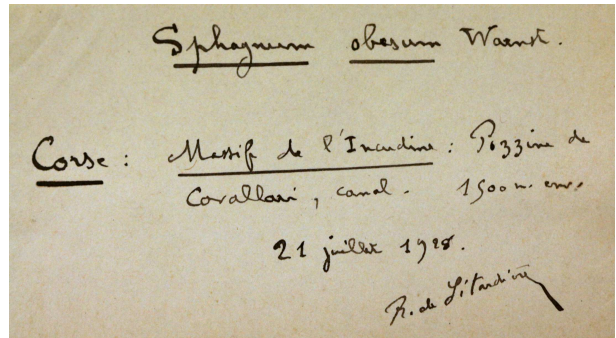 Sphagnum obesum Warnst.
Corse : Massif de l'Incudine : Pozzine de
Cavallari, canal. 1500 m. env.
21 juillet 1928.
R. de Litardière